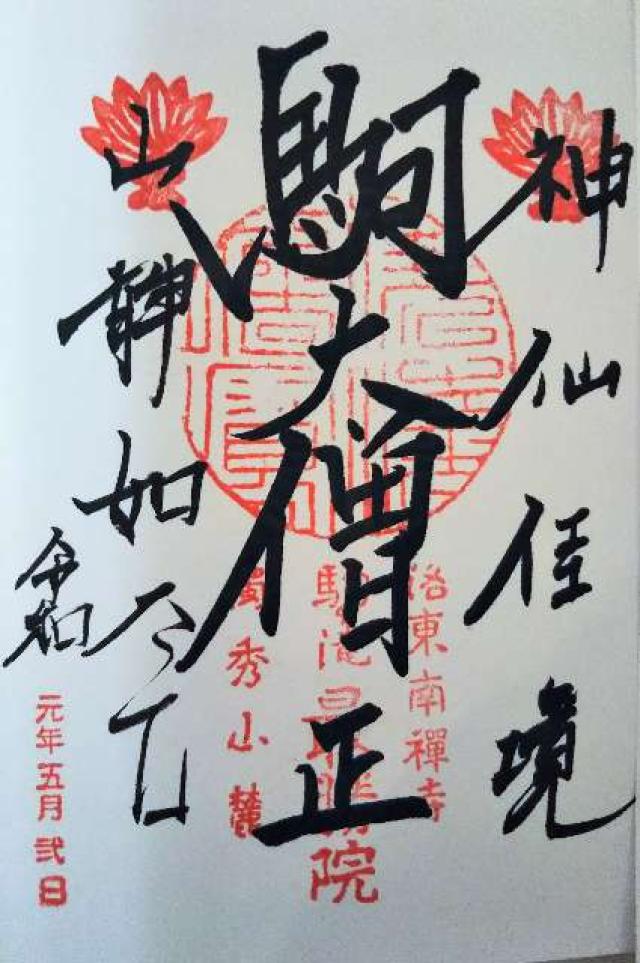 神仙佳境
洛東南禪寺
駒大僧正
駒滝最勝院
獨秀山麓
山静如太古
令和
元年五月弐日